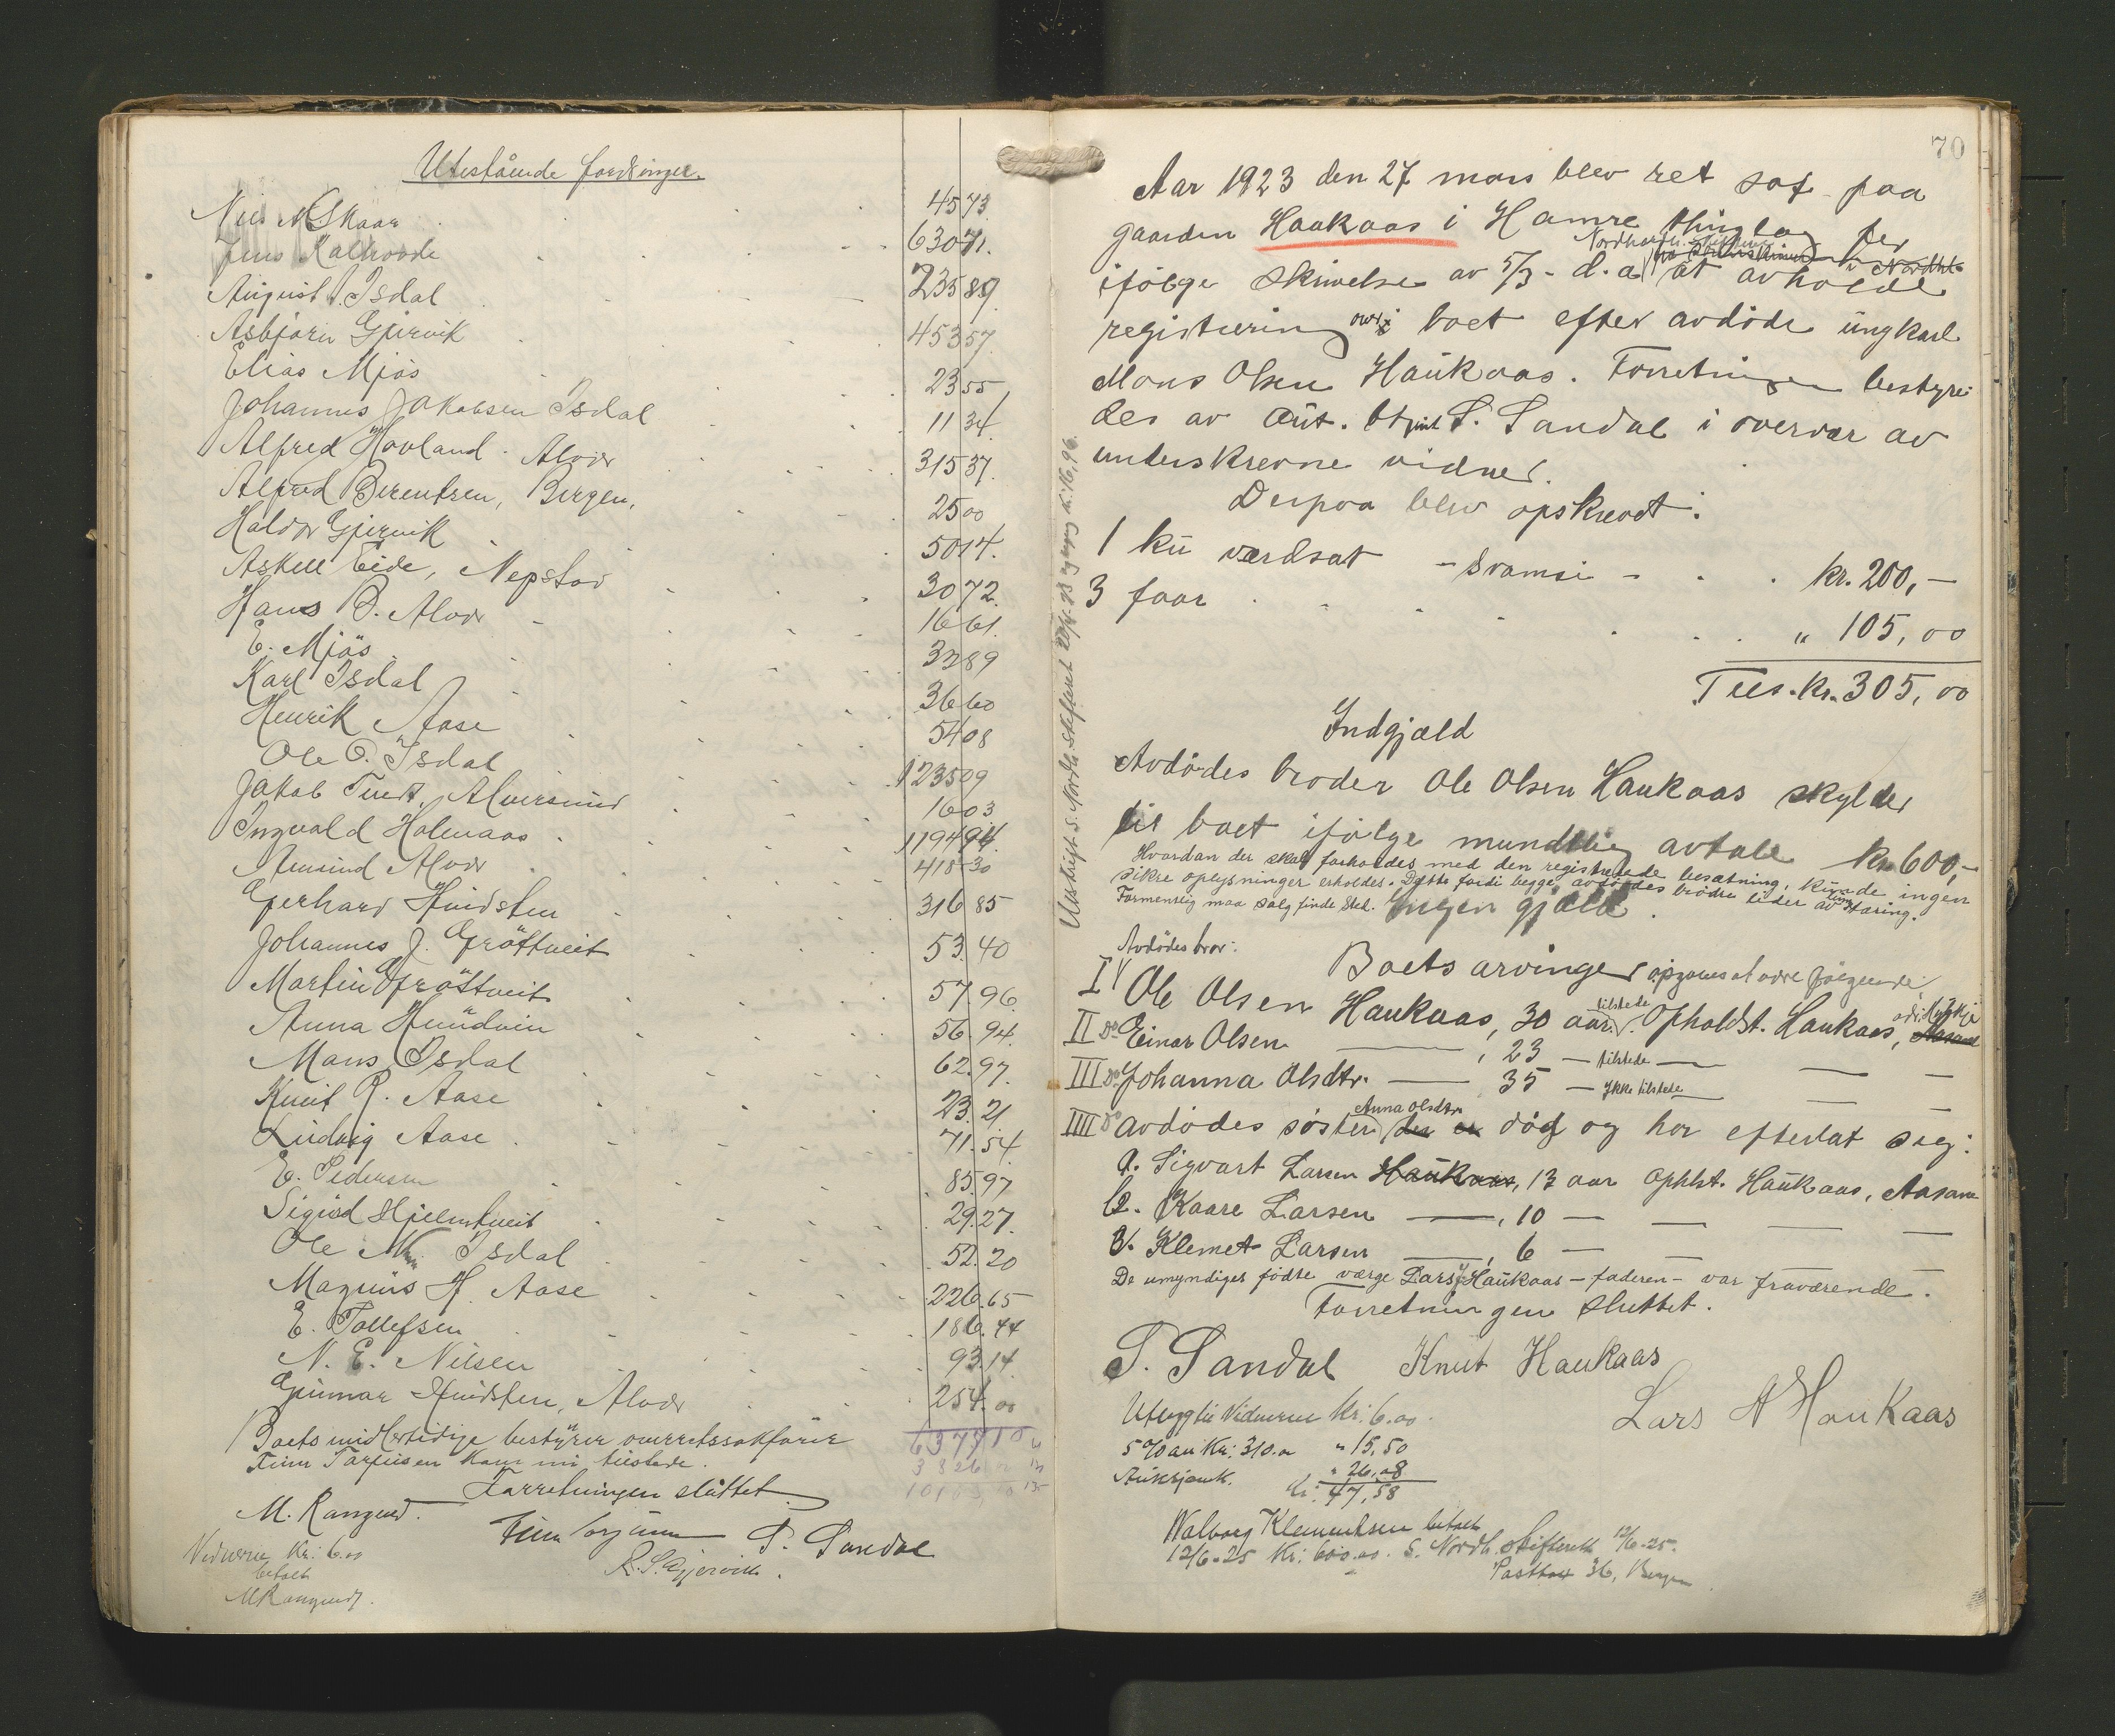 Utestående fordringer.
Nils N. Skaar 45 73
Jens Kalhovde 630 71.
August Isdal 235 89
Asbjørn Gjervik 453 57
Elias Mjös 23 55
Johannes Jakobsen Isdal 11 34.
Alfred Hovland. Alver 315 37.
Alfred Berentsen, Bergen. 25 00
Haldor Gjervik 50 14.
Askell Eide, Nepstad 30 72.
Hans B. Alver 16 61.
E. Mjös 33 89
Karl Isdal 36 60
Henrik Aase 54 08
Ole O. Isdal 1235 09
Jakob Tveit, Alversund 16 03
Ingvald Holmaas 1194 94.
Amund Alver 418-30
Gerhard Hindsten 316 85
Johannes J. Gröttveit 53.40
Martin Gröttveit 57.96
Anna Hundvin 56.94.
Mons Isdal 62.97.
Knut R. Aase 23.21
Ludvig Aase 71.54
E. Pedersen 85.97
Sigurd Hjelmtveit 29.27.
Ole M. Isdal 52.20
Magnus H. Aase 226.65
E. Tollefsen 186.44
N. E. Nilsen 93.14
Gunnar Hindsten, Alver 254.00
Boets midlertidige bestyrer overretssakfører
Finn Torjusen kom nu tilstede.
Forretningen sluttet.
M. Kangend. Finn Torjusen S. Sandal
R. S. Gjervik.
Vidnerne Kr: 6.00
betalt
70
Aar 1923 den 27 mars blev ret sat paa
gaarden Haukaas i Hamre thinglag for
Nordhordl. skifteret
ifölge skrivelse av 5/3- d.a. at avholde
registrering over boet efter avdöde ungkarl
Mons Olsen Haukaas. Forretningen bestyre-
des av aut. btjent S. Sandal i overvær av
underskrevne vidner.
Derpaa blev opskrevet:
1 ku værdsat - Svamsi - kr. 200,-
3 faar " 105,00
Tils. kr. 305,00
Indgjæld
Avdödes broder Ole Olsen Haukaas skylder
til boet ifölge mundtlig avtale kr 600,-
Hvordan der skal forholdes med den registrerte besætning, kunde ingen
sikre oplysninger erholdes. Dette fordi begge avdödes brödre lider av stæring.
Formentlig maa salg finde sted. Ingen gjæld.
Avdödes bror:
Boets arvinger opgives at være følgende:
I Ole Olsen Haukaas, 30 aar. tilstede Opholdst. Haukaas,
II Do Einar Olsen — , 23 — tilstede — — —
III Do Johanna Olsdtr. — 35 — Ikke tilstede — — —
IIII Do avdödes söster Anna Olsdtr. död og har efterlat sig:
1. Sigvart Larsen Haukaas, 13 aar Ophlst. Haukaas, Aasane
2. Kaare Larsen —, 10 — — — —
3. Klemet Larsen —, 6 — — — —
De umyndiges födte værge Lars Haukaas - faderen - var fraværende.
Forretningen sluttet.
S. Sandal Knut Haukaas
Lars A Haukaas
Utlegg til Vidnerne Kr: 6.00
5 % av Kr: 310.00 " 15,50
Auksjonk. " 26,08
Kr: 47,58
Walborg Klementsen betalt
12/6-25 Kr: 600.00. S. Nordh. skifterett 12/6-25.
Postbox 36, Bergen